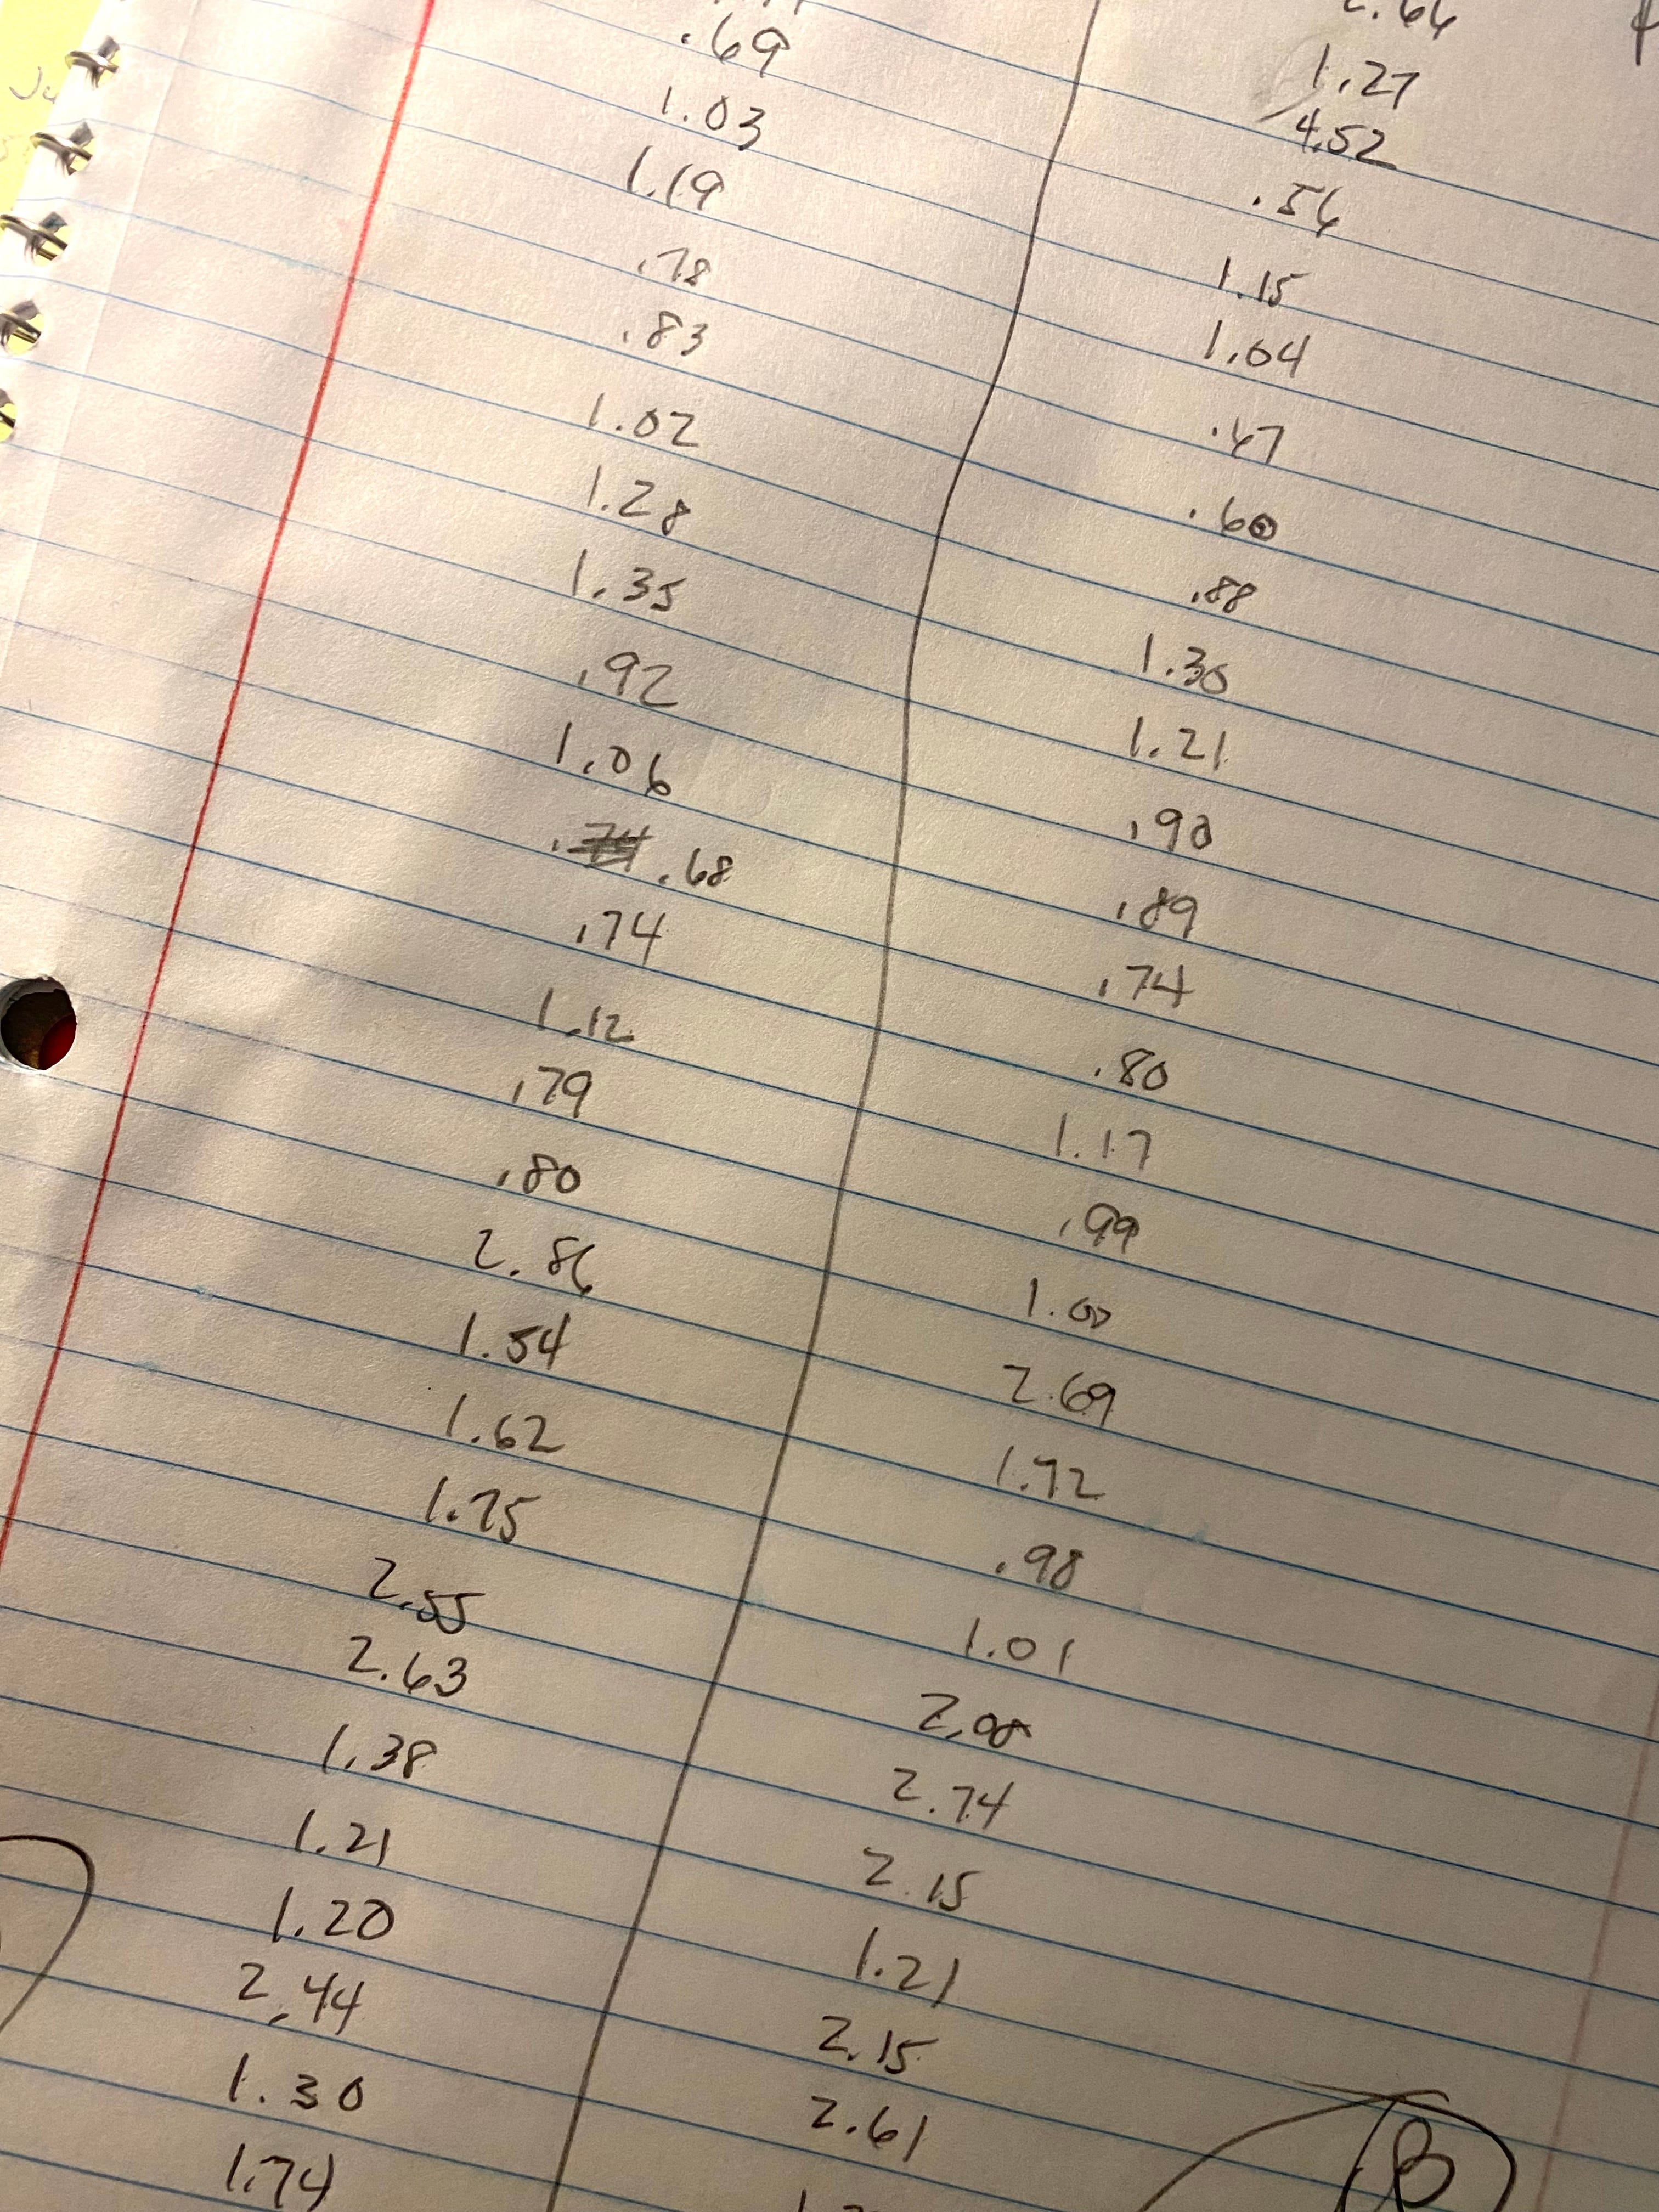 .69
1.03
1.19
.78
.83
1.02
1.28
1.35
.92
1.06
.74 .68
.74
1.12
.79
.80
2.86
1.54
1.62
1.75
2.55
2.63
1.38
1.21
1.20
2.44
1.30
1.74
2.66
1.27
4.52
.56
1.15
1.04
.67
.60
.88
1.30
1.21
.90
.89
.74
.80
1.17
.99
1.00
2.69
1.72
.98
1.01
2.08
2.74
2.15
1.21
2.15
2.61
B